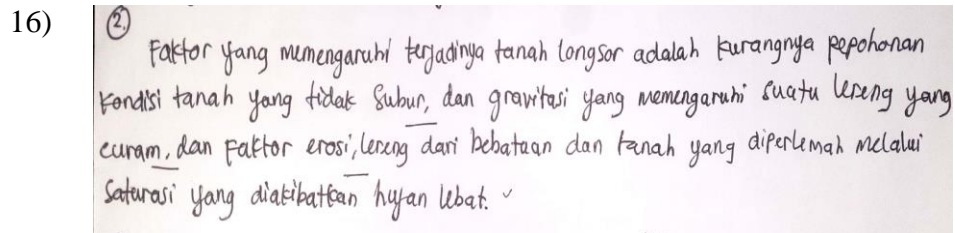 16)
2.
Faktor yang memengaruhi terjadinya tanah longsor adalah kurangnya pepohonan
kondisi tanah yang tidak subur, dan gravitasi yang memengaruhi suatu lereng yang
curam, dan faktor erosi, lereng dari bebatuan dan tanah yang diperlemah melalui
saturasi yang diakibatkan hujan lebat.